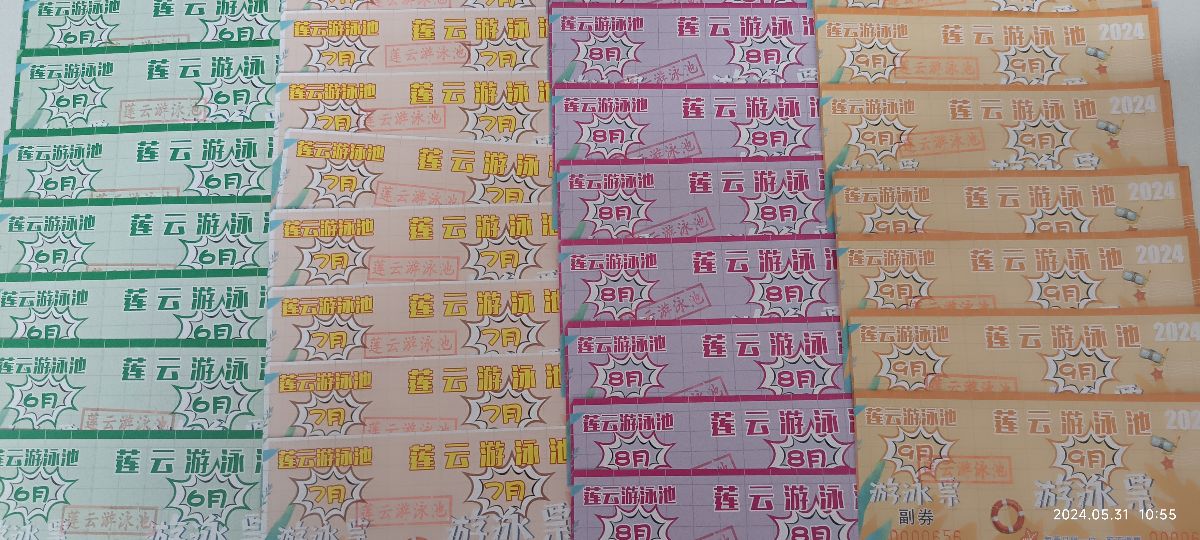 莲云游泳池 莲云游泳
6月 6月
莲云游泳池 莲云游泳
6月 莲云游泳池 6月
莲云游泳池 莲云游泳
6月 6月
莲云游泳池 莲云游泳
6月 6月
莲云游泳池 莲云游泳
6月 6月
莲云游泳池 莲云游泳
6月 莲云游泳池 6月
莲云游泳池 莲云游泳
6月 莲云游泳池 6月
莲云游泳池 莲云游泳
7月 莲云游泳池 7月
莲云游泳池 莲云游泳
7月 莲云游泳池 7月
莲云游泳池 莲云游泳
7月 莲云游泳池 7月
莲云游泳池 莲云游泳池
7月 莲云游泳池 7月
莲云游泳池 莲云游泳池
7月 莲云游泳池 7月
莲云游泳池 莲云游泳池
7月 7月
莲云游泳池 莲云游泳池
7月 莲云游泳池 7月
莲云游泳池 莲云游泳
8月 莲云游泳池 8月
莲云游泳池 莲云游泳
8月 莲云游泳池 8月
莲云游泳池 莲云游泳
8月 莲云游泳池 8月
莲云游泳池 莲云游泳
8月 莲云游泳池 8月
莲云游泳池 莲云游泳
8月 莲云游泳池 8月
莲云游泳池 莲云游泳
8月 8月
莲云游泳池 莲云游泳
8月 8月
莲云游泳池 莲云游泳池 2024
9月 莲云游泳池 9月
莲云游泳池 莲云游泳池 2024
9月 莲云游泳池 9月
莲云游泳池 莲云游泳池 2024
9月 9月
莲云游泳池 莲云游泳池 2024
9月 9月
莲云游泳池 莲云游泳池 2024
9月 9月
莲云游泳池 莲云游泳池
9月 莲云游泳池 9月
游泳票 游泳票
副券
0000656
2024.05.31 10:55